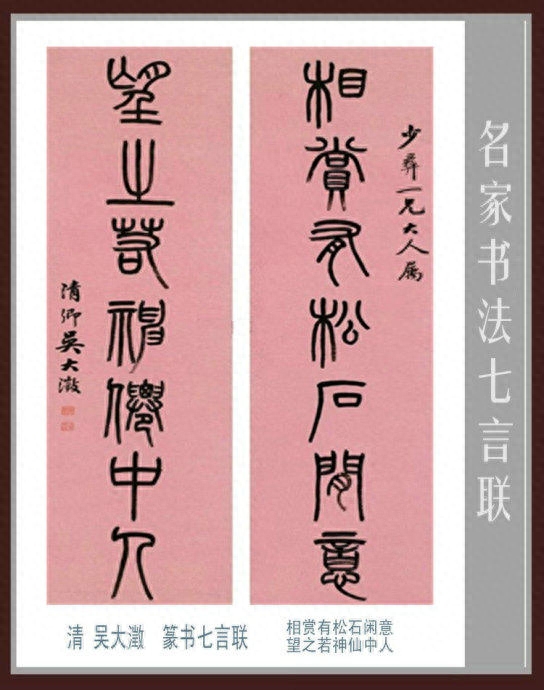 名家书法七言联
少彝一兄大人属
相賞有松石閒意
望之若神僊中人
清卿吴大澂
清 吴大澂 篆书七言联
相赏有松石闲意
望之若神仙中人